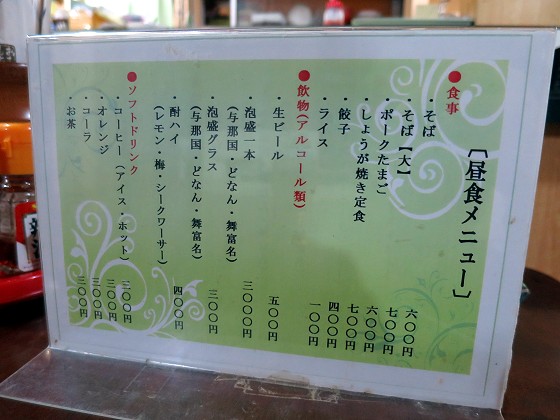 ［昼食メニュー］
●食事
・そば 六〇〇円
・そば【大】 七〇〇円
・ポークたまご 六〇〇円
・しょうが焼き定食 七〇〇円
・餃子 四〇〇円
・ライス 一〇〇円
●飲物（アルコール類）
・生ビール 五〇〇円
・泡盛一本 三〇〇〇円
（与那国・どなん・舞富名）
・泡盛グラス 三〇〇円
（与那国・どなん・舞富名）
・酎ハイ 四〇〇円
（レモン・梅・シークワーサー）
●ソフトドリンク
・コーヒー（アイス・ホット） 三〇〇円
・オレンジ 三〇〇円
・コーラ 三〇〇円
お茶 三〇〇円